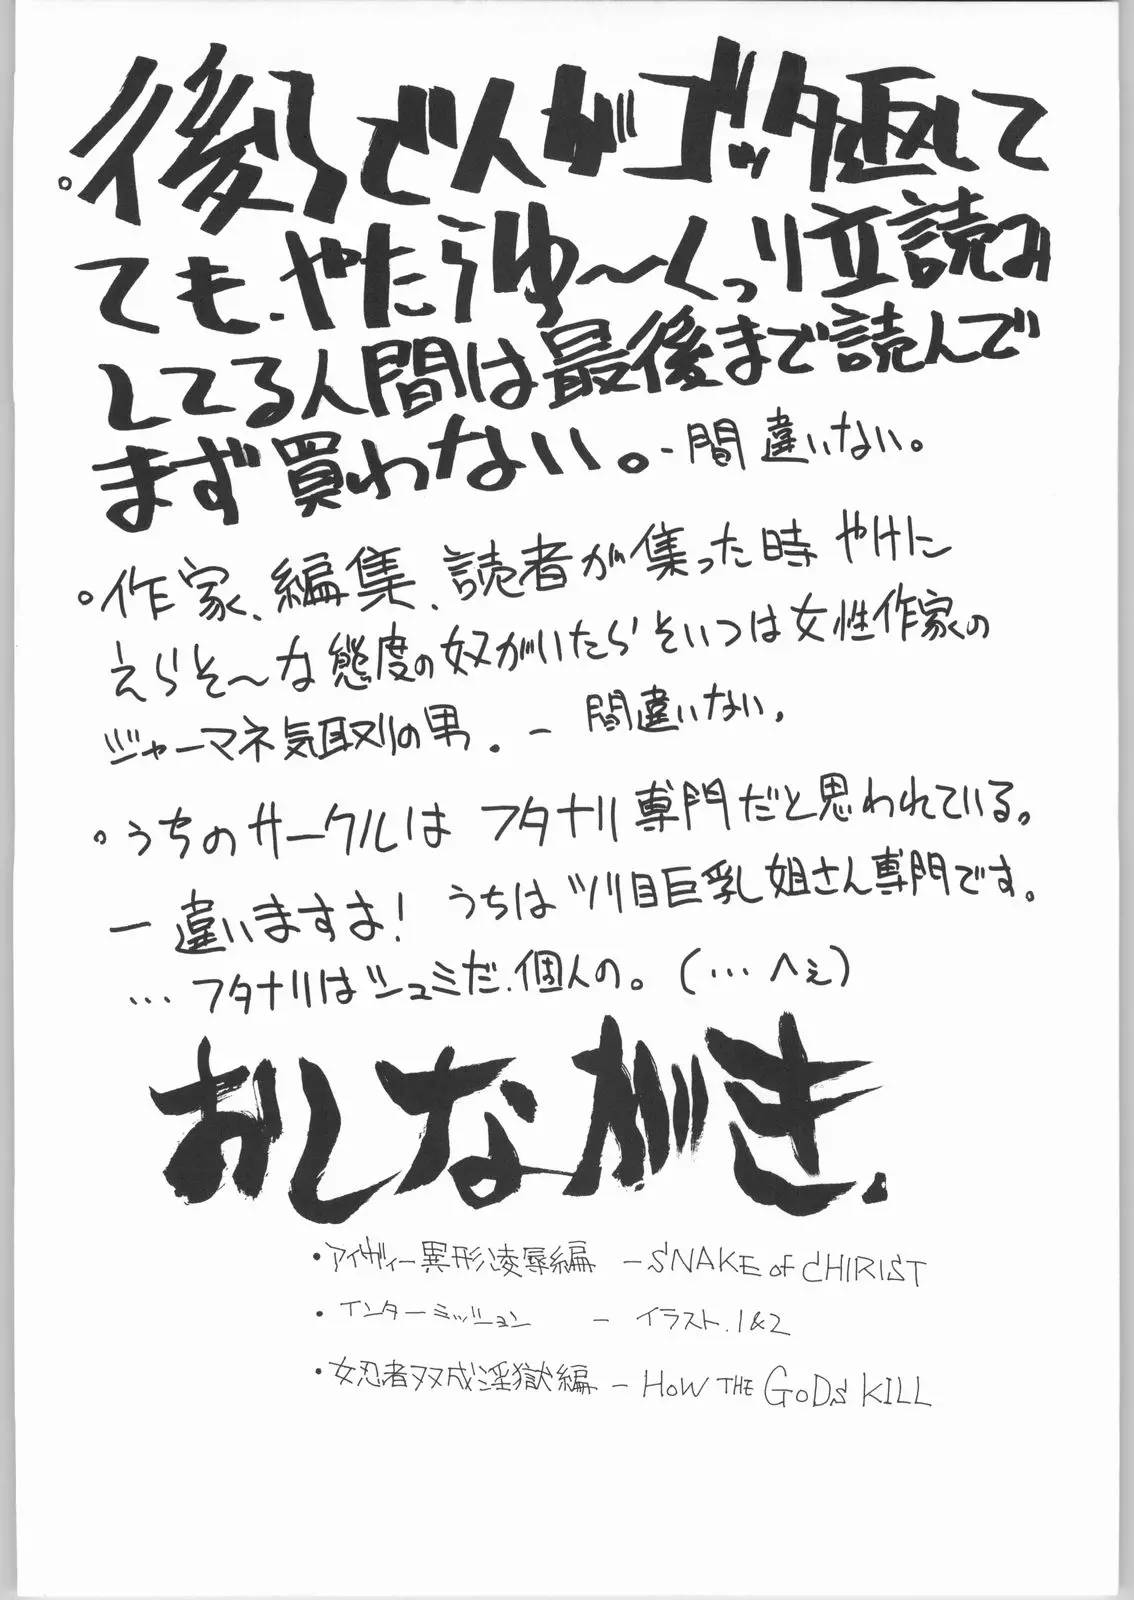 。後ろで人がゴッタ返して
ても、やたらゆ〜くっり立読み
してる人間は最後まで読んで
まず買わない。-間違いない。
。作家、編集、読者が集った時やけに
えらそ〜な態度の奴がいたらそいつは女性作家の
ジャーマネ気取りの男。- 間違いない。
。うちのサークルは フタナリ専門だと思われている。
ー 違いますよ! うちは ツリ目巨乳姐さん専門です。
… フタナリはシュミだ、個人の。(… へぇ)
おしながき.
・アイヴィー異形凌辱編 - SNAKE of CHIRIST
・インターミッション - イラスト.1&2
・女忍者双成淫獄編 - HOW THE GODS KILL